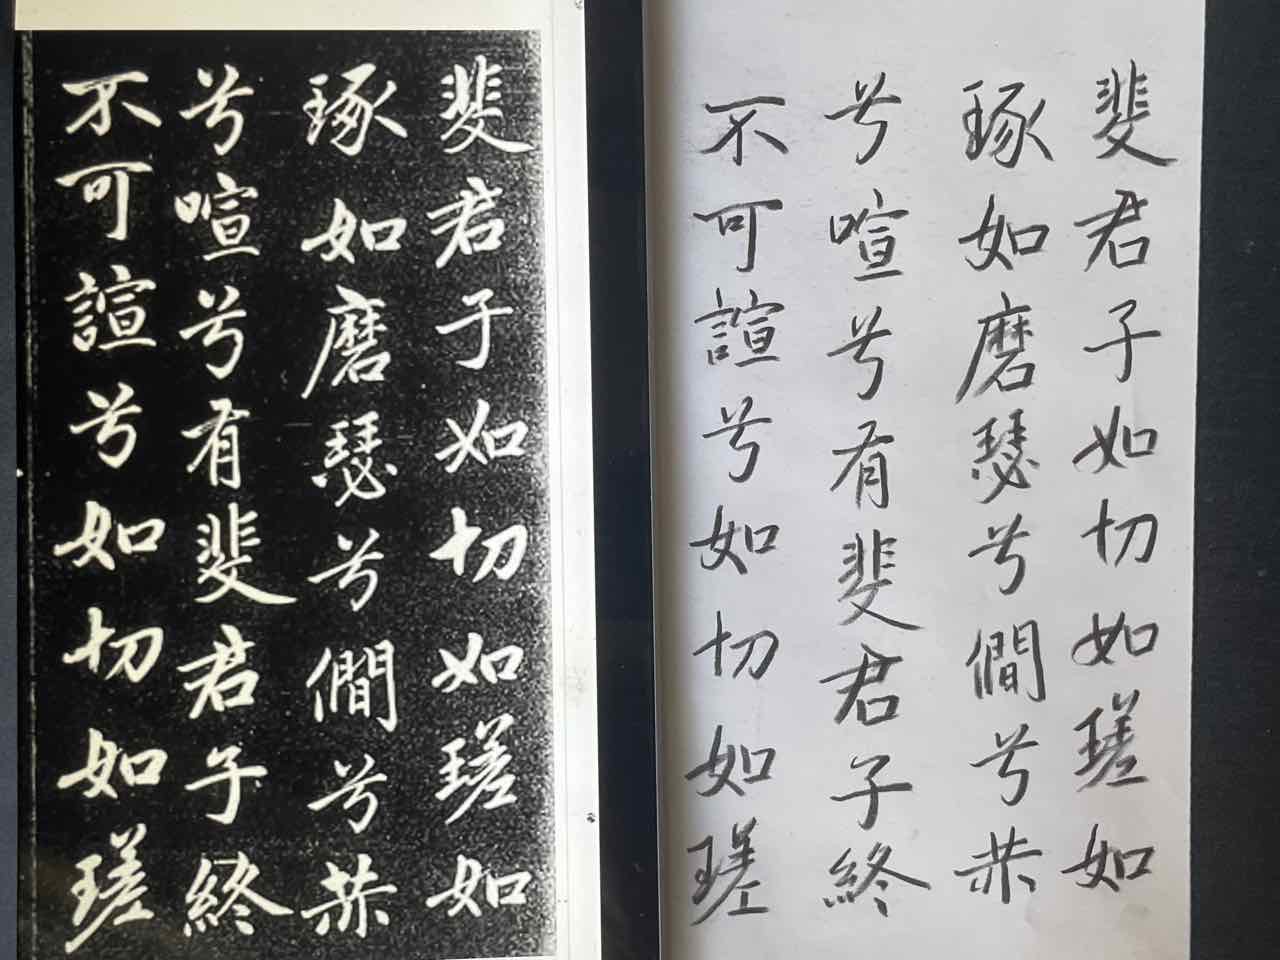 斐君子如切如瑳如
琢如磨瑟兮僴兮赫
兮喧兮有斐君子終
不可諠兮如切如瑳
斐君子如切如瑳如
琢如磨瑟兮僴兮赫
兮喧兮有斐君子終
不可諠兮如切如瑳